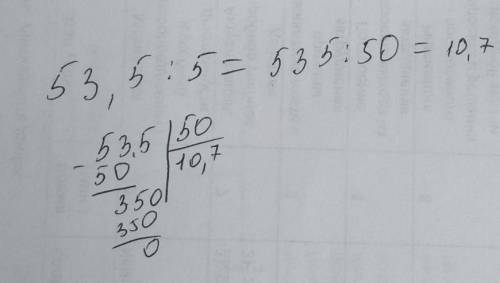 53,5:5= 535:50=10,7
- 53.5 50
50 10,7
350
350
0